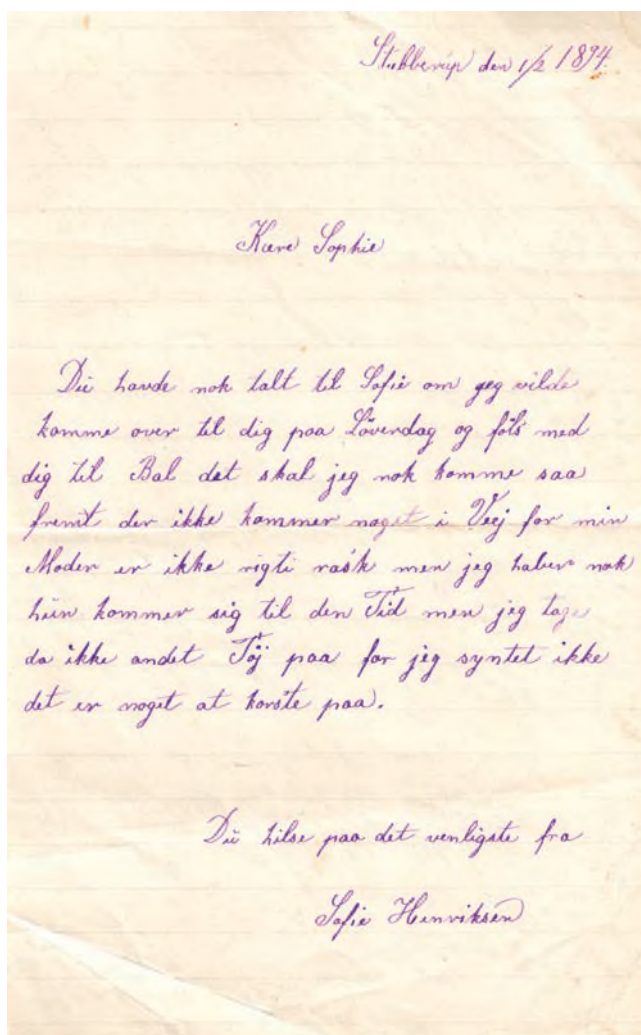 Stubberup den 1/2 1894.
Kære Sophie
Du havde nok talt til Sofie om jeg vilde
komme over til dig paa Löverdag og föls med
dig til Bal det skal jeg nok komme saa
fremt der ikke kommer noget i Vej for min
Moder er ikke rigti rask men jeg haber nok
hun kommer sig til den Tid men jeg tage
da ikke andet Töj paa for jeg syntet ikke
det er noget at korste paa.
Du hilse paa det venligste fra
Sofie Henriksen